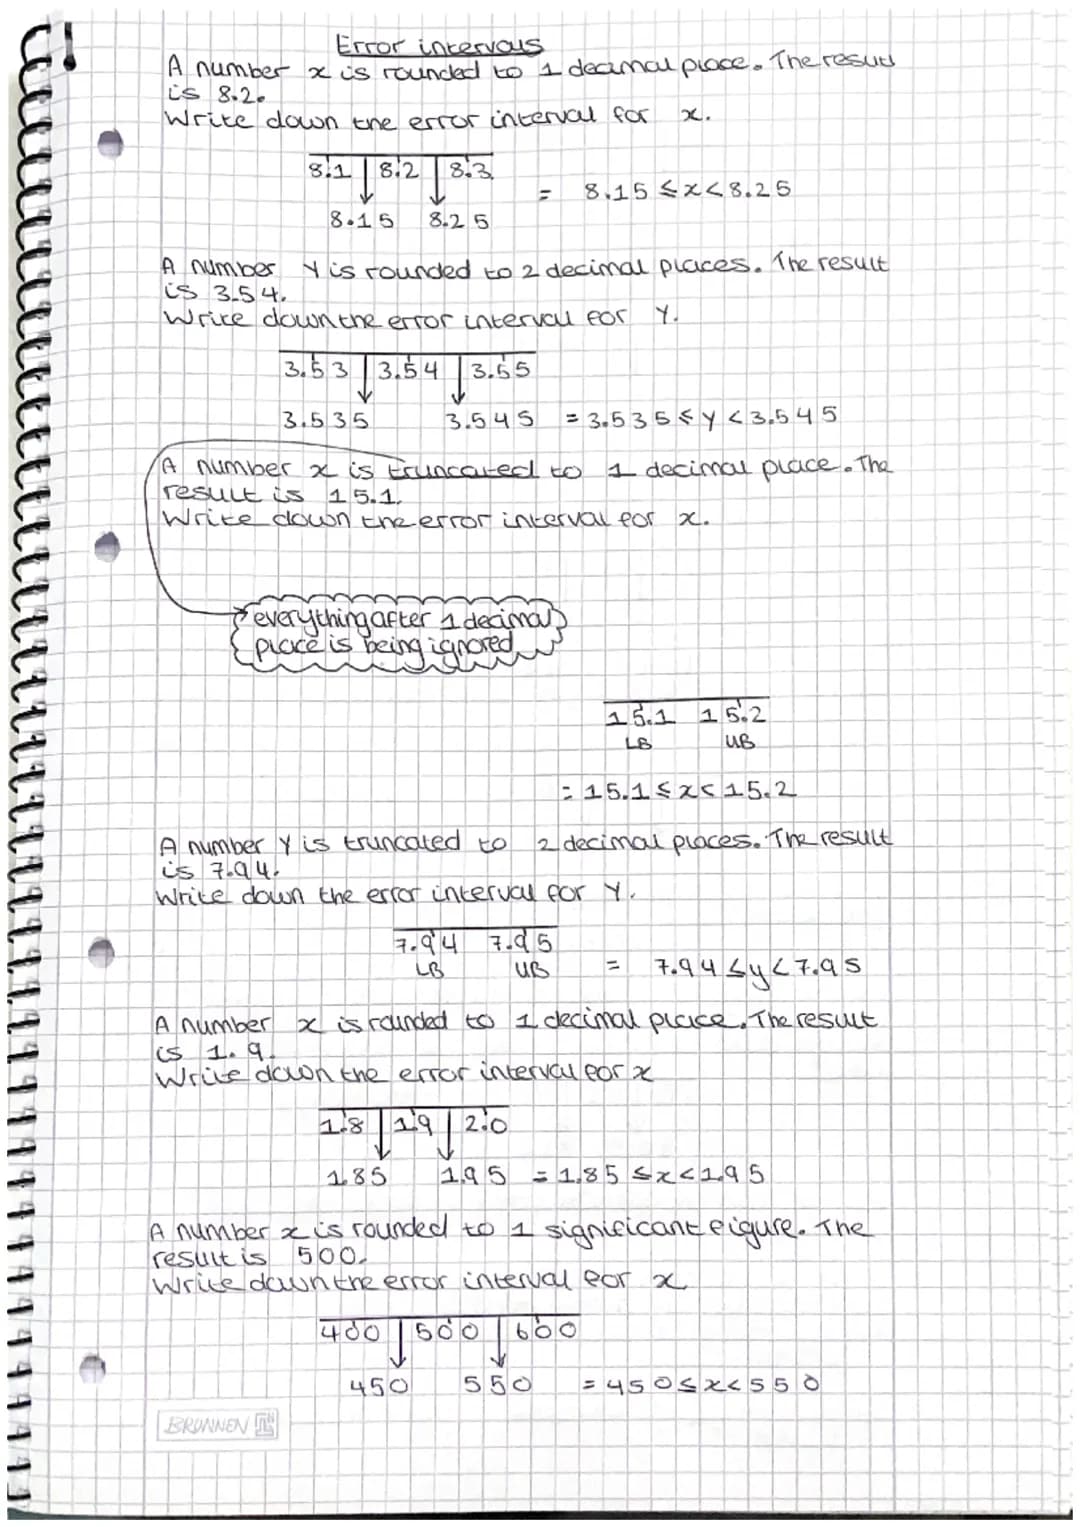 Error intervals
A number x is rounded to 1 decimal place. The result
is 8.2.
Write down the error interval for x.
8.1 8.2 8.3
8.15 8.25 = 8.15 ≤ x < 8.25
A number Y is rounded to 2 decimal places. The result
is 3.54.
Write down the error interval for Y.
3.53 3.54 3.55
3.535 3.545 = 3.535 ≤ y < 3.545
A number x is truncated to 1 decimal place. The
result is 15.1.
Write down the error interval for x.
everything after 1 decimal
place is being ignored
15.1 15.2
LB UB
= 15.1 ≤ x < 15.2
A number Y is truncated to 2 decimal places. The result
is 7.94.
Write down the error interval for Y.
7.94 7.95
LB UB = 7.94 ≤ y < 7.95
A number x is rounded to 1 decimal place. The result
is 1.9.
Write down the error interval for x
1.8 1.9 2.0
1.85 1.95 = 1.85 ≤ x < 1.95
A number x is rounded to 1 significant figure. The
result is 500.
Write down the error interval for x
400 500 600
450 550 = 450 ≤ x < 550
BRUNNEN